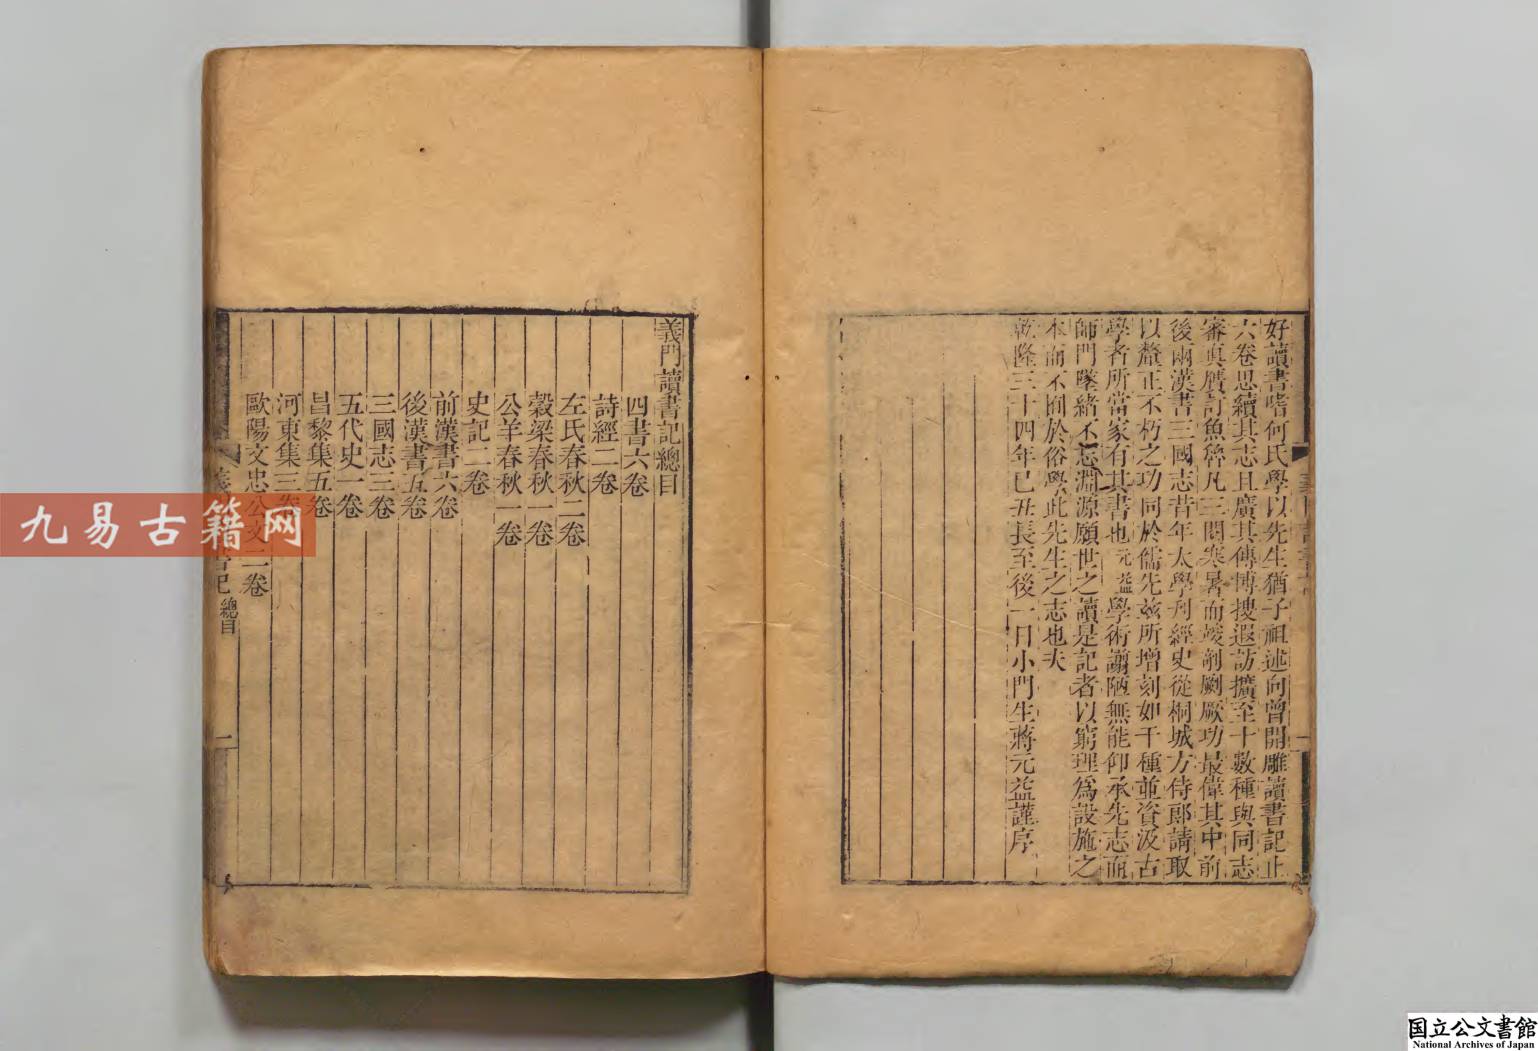 好讀書嗜何氏學以先生猶子祖述向曾開雕讀書記止
六卷思續其志且廣其傳博搜遐訪擴至十數種與同志
審眞贋訂魚豨凡三閱寒暑而竣剞劂厥功最偉其中前
後兩漢書三國志昔年太學刋經史從桐城方侍郎請取
以釐正不朽之功同於儒先兹所增刻如干種並資汲古
學者所當家有其書也元益學術谫陋無能仰承先志而
師門墜緒不忘淵源願世之讀是記者以窮理爲設施之
本而不囿於俗學此先生之志也夫
乾隆三十四年己丑長至後一日小門生蔣元益謹序
義門讀書記總目
四書六卷
詩經二卷
左氏春秋二卷
穀梁春秋一卷
公羊春秋一卷
史記二卷
前漢書六卷
後漢書五卷
三國志三卷
五代史一卷
昌黎集五卷
河東集三卷
歐陽文忠公文二卷
總目
一
九易古籍网
国立公文書館
National Archives of Japan